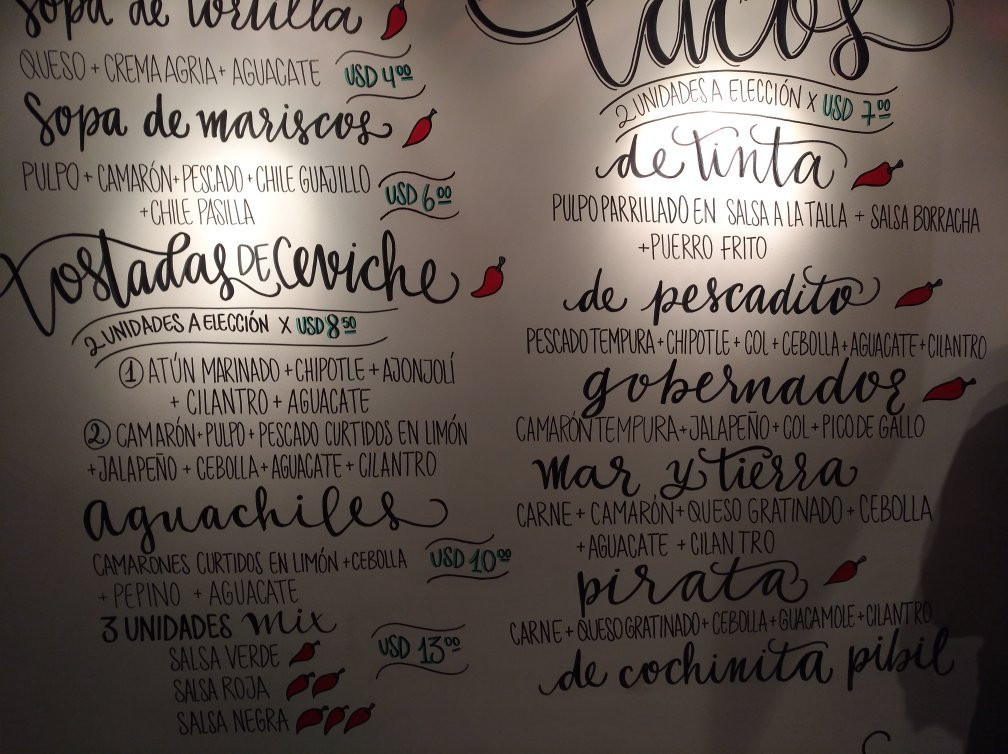 Sopa de tortilla
QUESO + CREMA AGRIA + AGUACATE USD 4.00
Sopa de mariscos
PULPO + CAMARÓN + PESCADO + CHILE GUAJILLO
+ CHILE PASILLA USD 6.00
Tostadas DE Ceviche
2 UNIDADES A ELECCIÓN X USD 8.50
1 ATÚN MARINADO + CHIPOTLE + AJONJOLÍ
+ CILANTRO + AGUACATE
2 CAMARÓN + PULPO + PESCADO CURTIDOS EN LIMÓN
+ JALAPEÑO + CEBOLLA + AGUACATE + CILANTRO
aguachiles
CAMARONES CURTIDOS EN LIMÓN + CEBOLLA USD 10.00
+ PEPINO + AGUACATE
3 UNIDADES mix USD 13.00
SALSA VERDE
SALSA ROJA
SALSA NEGRA
Tacos
2 UNIDADES A ELECCIÓN X USD 7.00
de tinta
PULPO PARRILLADO EN SALSA A LA TALLA + SALSA BORRACHA
+ PUERRO FRITO
de pescadito
PESCADO TEMPURA + CHIPOTLE + COL + CEBOLLA + AGUACATE + CILANTRO
gobernador
CAMARÓN TEMPURA + JALAPEÑO + COL + PICO DE GALLO
mar y tierra
CARNE + CAMARÓN + QUESO GRATINADO + CEBOLLA
+ AGUACATE + CILANTRO
pirata
CARNE + QUESO GRATINADO + CEBOLLA + GUACAMOLE + CILANTRO
de cochinita pibil